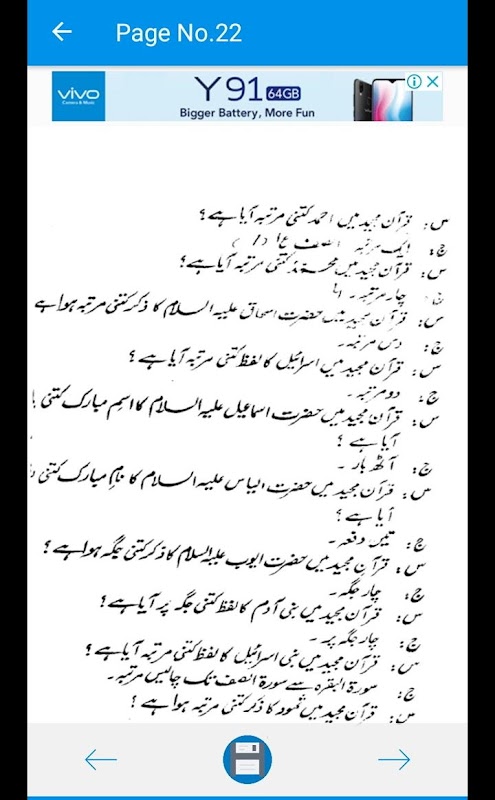 Page No.22
vivo
Camera & Music
Y91 64GB
Bigger Battery, More Fun
س: قرآن مجید میں احمد کتنی مرتبہ آیا ہے ؟
ج: ایک مرتبہ
س: قرآن مجید میں محمدؐ کتنی مرتبہ آیا ہے ؟
ج: چار مرتبہ۔
س: قرآن مجید میں حضرت اسحاق علیہ السلام کا ذکر کتنی مرتبہ ہوا ہے
ج: دس مرتبہ۔
س: قرآن مجید میں اسرائیل کا لفظ کتنی مرتبہ آیا ہے ؟
ج: دو مرتبہ۔
س: قرآن مجید میں حضرت اسماعیل علیہ السلام کا اسم مبارک کتنی
آیا ہے ؟
ج: آٹھ بار۔
س: قرآن مجید میں حضرت الیاس علیہ السلام کا نام مبارک کتنی
آیا ہے ؟
ج: تین دفعہ۔
س: قرآن مجید میں حضرت ایوب علیہ السلام کا ذکر کتنی جگہ ہوا ہے ؟
ج: چار جگہ۔
س: قرآن مجید میں بنی آدم کا لفظ کتنی جگہ پر آیا ہے ؟
ج: چار جگہ پر۔
س: قرآن مجید میں بنی اسرائیل کا لفظ کتنی مرتبہ آیا ہے ؟
ج: سورۃ البقرہ سے سورۃ الصف تک چالیس مرتبہ۔
س: قرآن مجید میں ثمود کا ذکر کتنی مرتبہ ہوا ہے ؟